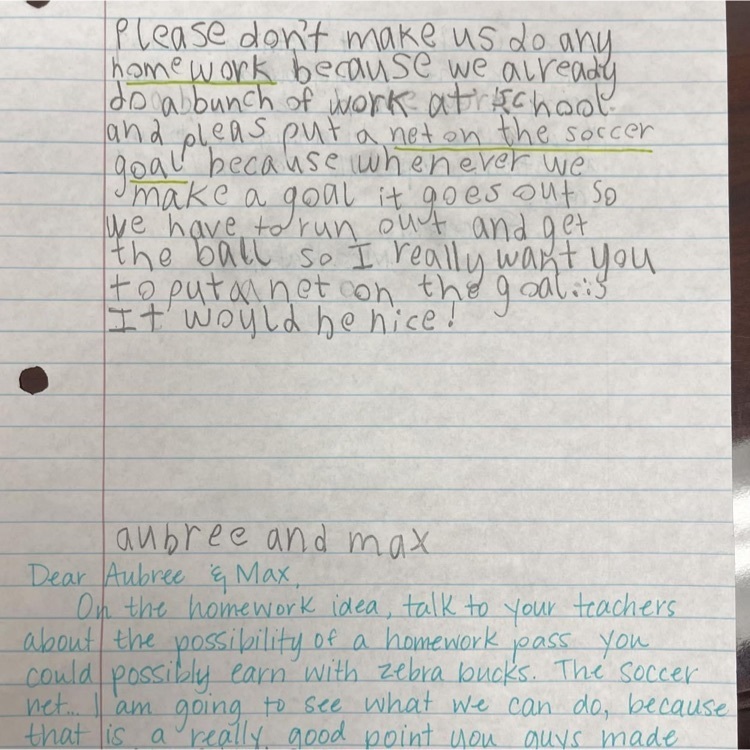 Please don't make us do any
homework because we already
do a bunch of work at school
and pleas put a net on the soccer
goal because whenever we
make a goal it goes out so
we have to run out and get
the ball so I really want you
to put a net on the goal.
It would be nice!
aubree and max
Dear Aubree & Max,
On the homework idea, talk to your teachers
about the possibility of a homework pass you
could possibly earn with zebra bucks. The soccer
net... I am going to see what we can do, because
that is a really good point you guys made